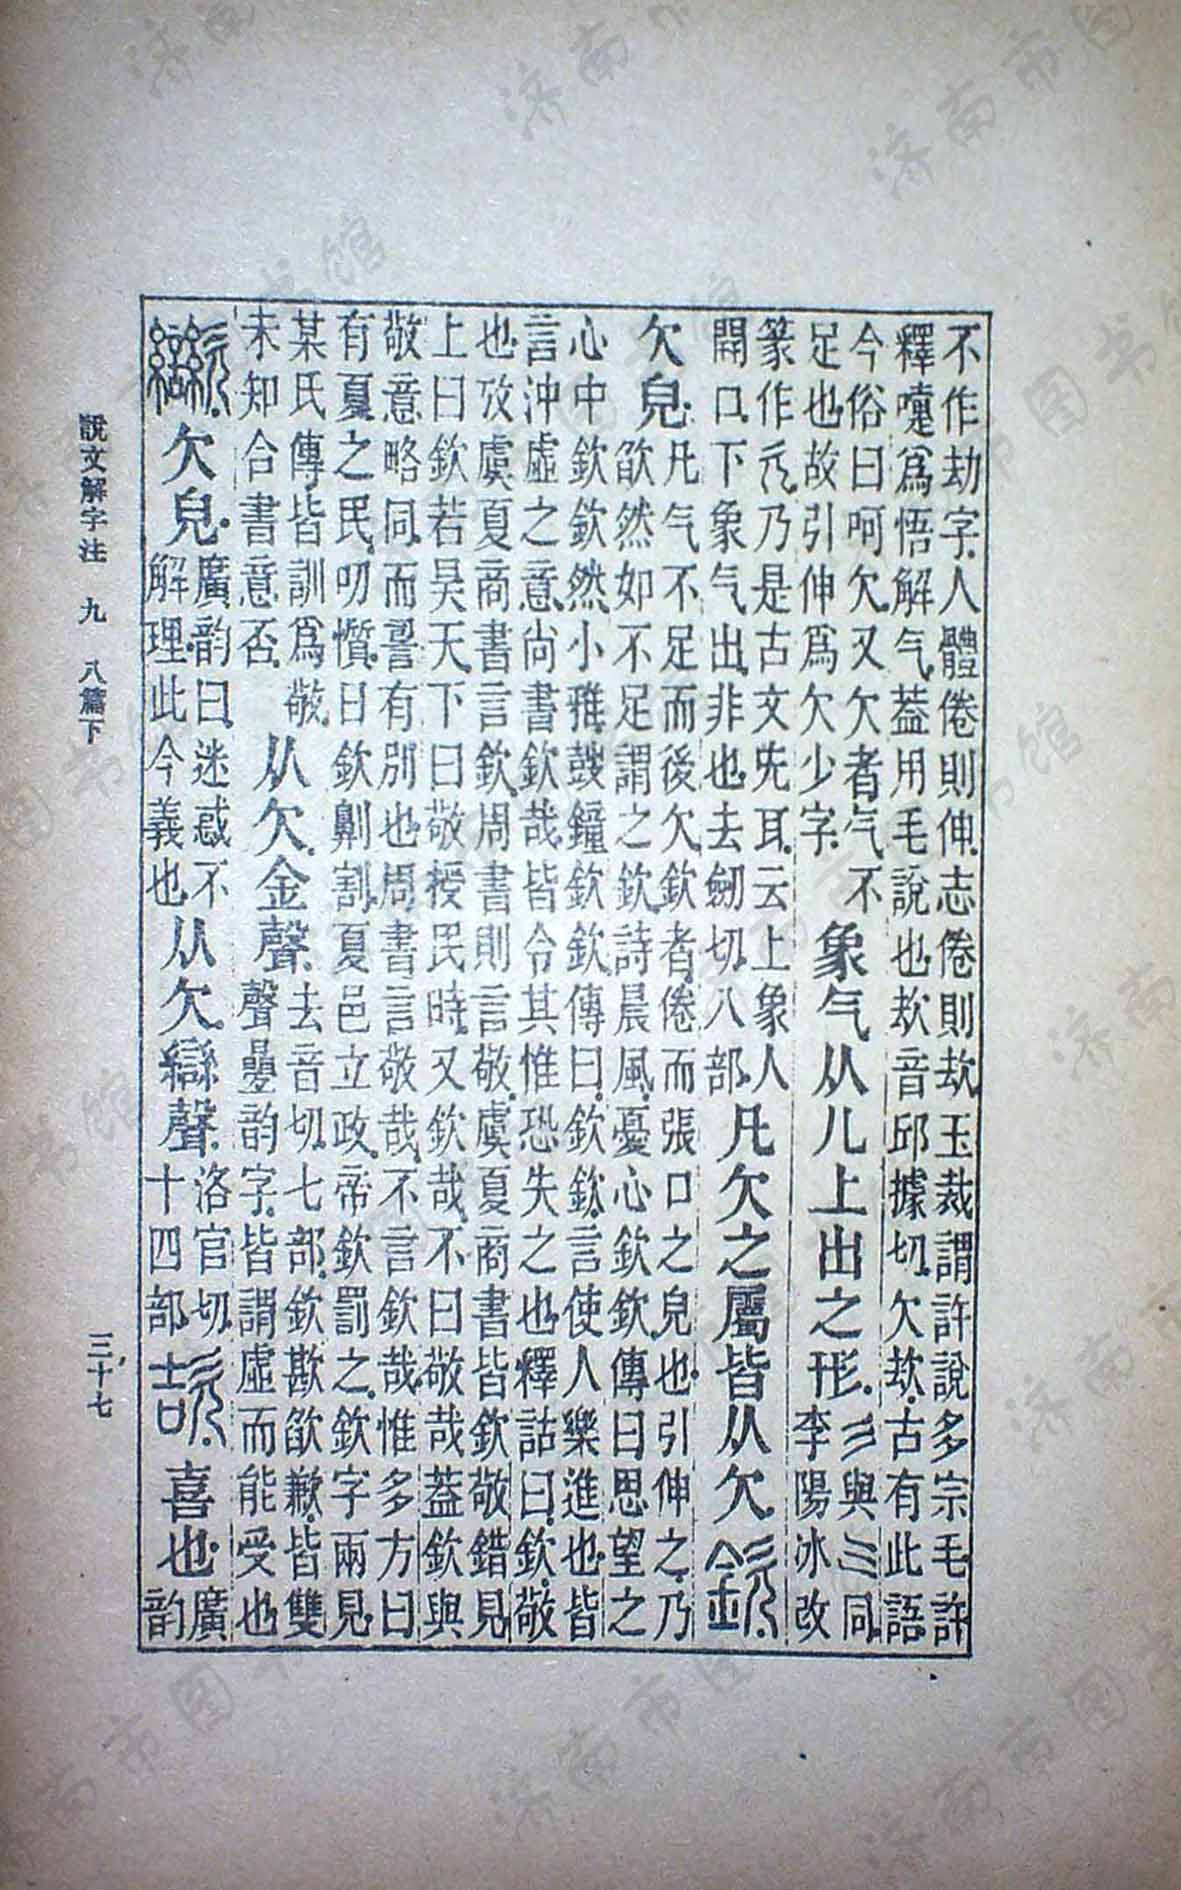 不作劫字人體倦則伸志倦則㰦玉裁謂許說多宗毛許
釋嚏爲悟解气葢用毛說也㰦音邱據切欠㰦古有此語
今俗曰呵欠又欠者气不
足也故引伸爲欠少字
象气从儿上出之形
彡與三同
李陽冰改
篆作乃是古文旡耳云上象人
開口下象气出非也去劒切八部
凡欠之屬皆从欠
欽
欠皃
凡气不足而後欠欽者倦而張口之皃也引伸之乃
欿然如不足謂之欽詩晨風憂心欽欽傳曰思望之
心中欽欽然小雅鼓鐘欽欽傳曰欽欽言使人樂進也皆
言沖虛之意尚書欽哉皆令其惟恐失之也釋詁曰欽敬
也攷虞夏商書言欽周書則言敬虞夏商書皆欽敬錯見
上曰欽若昊天下曰敬授民時又欽哉不曰敬哉葢欽與
敬意略同而詈有別也周書言敬哉不言欽哉惟多方曰
有夏之民叨懫日欽劓割夏邑立政帝欽罰之欽字兩見
某氏傳皆訓爲敬
未知合書意否
从欠金聲
去音切七部欽歁欿歉皆雙
聲疊韵字皆謂虛而能受也
欠皃
廣韵曰迷惑不
解理此今義也
从欠䜌聲
洛官切
十四部
喜也
廣
韵
說文解字注 九 八篇下
三十七